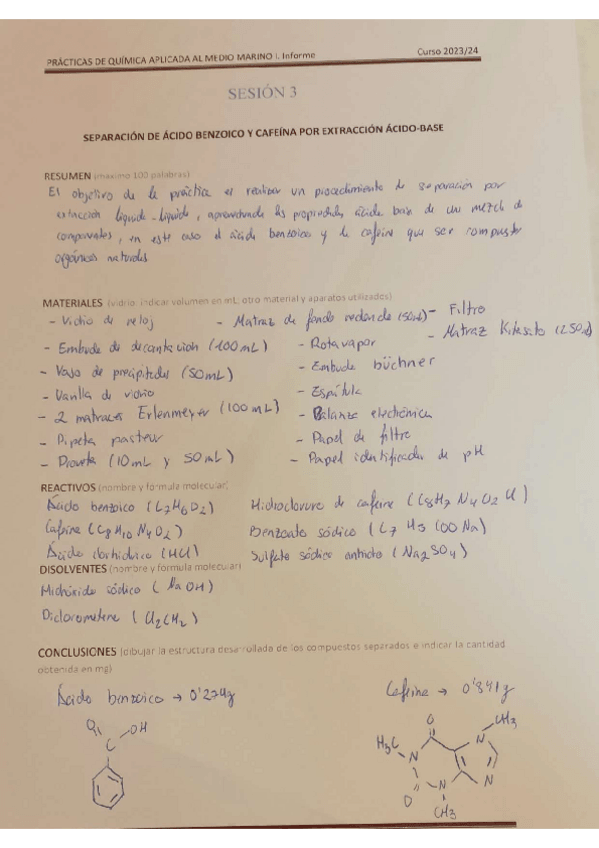 PRÁCTICAS DE QUÍMICA APLICADA AL MEDIO MARINO I. Informe Curso 2023/24
SESIÓN 3
SEPARACIÓN DE ÁCIDO BENZOICO Y CAFEÍNA POR EXTRACCIÓN ÁCIDO-BASE
RESUMEN (máximo 100 palabras)
El objetivo de la práctica es realizar un procedimiento de separación por
extracción líquido-líquido, aprovechando las propiedades ácido base de un mezcla de
componentes, en este caso el ácido benzoico y la cafeína que ser compuestos
orgánicos naturales
MATERIALES (vidrio: indicar volumen en mL, otro material y aparatos utilizados)
- Vidrio de reloj - Matraz de fondo redondo (50ml) - Filtro
- Embudo de decantación (100mL) - Rotavapor - Matraz Kitasato (250ml)
- Vaso de precipitados (50mL) - Embudo büchner
- Varilla de vidrio - Espátula
- 2 matraces Erlenmeyer (100mL) - Balanza electrónica
- Pipeta pasteur - Papel de filtro
- Probeta (10mL y 50mL) - Papel identificador de pH
REACTIVOS (nombre y fórmula molecular)
Ácido benzoico (C7H6O2) Hidrocloruro de cafeína (C8H7N4O2Cl)
Cafeína (C8H10N4O2) Benzoato sódico (C7H5COONa)
Ácido clorhídrico (HCl) Sulfato sódico anhidro (Na2SO4)
DISOLVENTES (nombre y fórmula molecular)
sódico (NaOH)
Diclorometano (Cl2CH2)
CONCLUSIONES (dibujar la estructura desarrollada de los compuestos separados e indicar la cantidad
obtenida en mg)
Ácido benzoico → 0'274g Cafeína → 0'341g
O C OH
O CH3 H3C N N N N O CH3